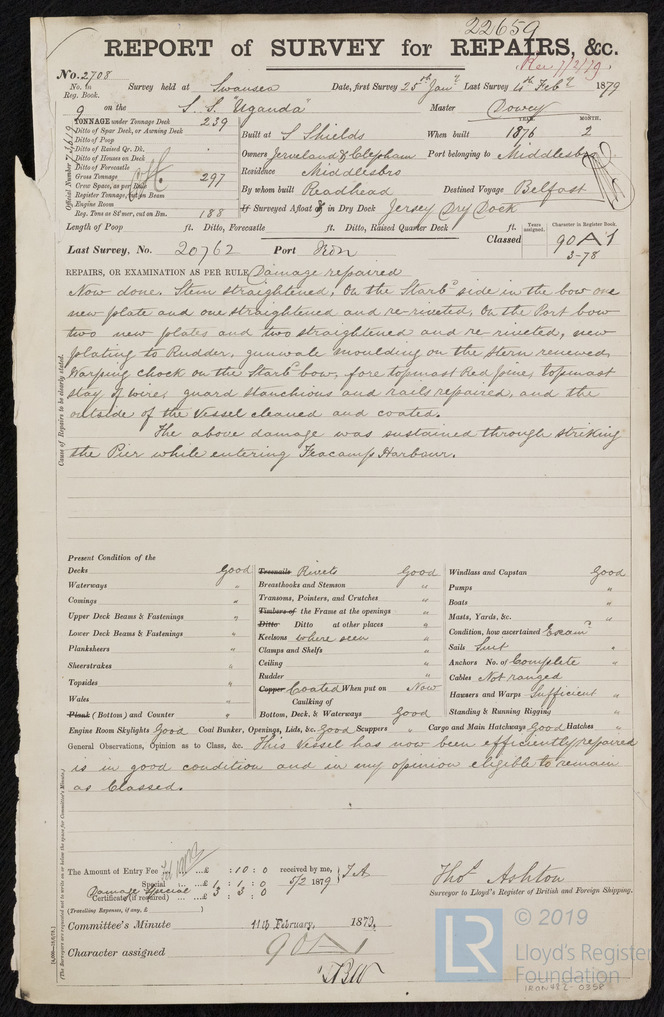 22659
REPORT of SURVEY for REPAIRS, &c.
Rec 7/2/79
No. 2708
No. in Reg. Book. Survey held at Swansea Date, first Survey 25th Jany Last Survey 4th Feby 1879
9 on the S.S. "Uganda" Master Dovey
TONNAGE under Tonnage Deck 239
Ditto of Spar Deck, or Awning Deck
Ditto of Poop
Ditto of Raised Qr. Dk.
Ditto of Houses on Deck
Ditto of Forecastle
Gross Tonnage 297
Crew Space, as per Rule
Register Tonnage, cut on Beam
Engine Room
Reg. Tons as St'mer, cut on Bm. 188
Official Number
YEAR. MONTH.
Built at S Shields When built 1876 2
Owners Jerveland & Clepham Port belonging to Middlesbro
Residence Middlesbro
By whom built Readhead Destined Voyage Belfast
If Surveyed Afloat or in Dry Dock Jersey Dry Dock
Length of Poop ft. Ditto, Forecastle ft. Ditto, Raised Quarter Deck ft.
Years assigned. Character in Register Book.
Classed 90 A 1
3-78
Last Survey, No. 20762 Port Iron
REPAIRS, OR EXAMINATION AS PER RULE Damage repaired
Now done. Stem straightened, On the Starbd side in the bow one
new plate and one straightened and re-riveted, On the Port bow
two new plates and two straightened and re-riveted, new
plating to Rudder, gunwale moulding on the stern renewed,
Warping Chock on the Starbd bow, fore topmast topmast
stay of wire, guard stanchions and rails repaired, and the
outside of the Vessel cleaned and coated.
The above damage was sustained through striking
the Pier while entering Feacamp Harbour.
Cause of Repairs to be clearly stated.
Present Condition of the
Decks Good
Waterways "
Comings "
Upper Deck Beams & Fastenings "
Lower Deck Beams & Fastenings "
Planksheers "
Sheerstrakes "
Topsides "
Wales "
Plank (Bottom) and Counter "
Treenails Rivets Good
Breasthooks and Stemson "
Transoms, Pointers, and Crutches "
Timbers of the Frame at the openings "
Ditto Ditto at other places "
Keelsons where seen "
Clamps and Shelfs "
Ceiling "
Rudder "
Copper Coated When put on Now
Caulking of
Bottom, Deck, & Waterways Good
Windlass and Capstan Good
Pumps "
Boats "
Masts, Yards, &c. "
Condition, how ascertained Examn
Sails Suit "
Anchors No. of Complete "
Cables Not ranged
Hawsers and Warps Sufficient "
Standing & Running Rigging "
Engine Room Skylights Good Coal Bunker, Openings, Lids, &c. Good Scuppers " Cargo and Main Hatchways Good Hatches "
General Observations, Opinion as to Class, &c. This Vessel has now been efficiently repaired
is in good condition and in my opinion eligible to remain
as Classed.
(The Surveyors are requested not to write on or below the space for Committee's Minute.)
The Amount of Entry Fee ... £ : 10 : 0 received by me,
Special ... £ 1 : 1 : 0 5/2 1879 T A
Damage Special
Certificate (if required) ... £ 3 : 3 : 0
(Travelling Expenses, if any, £ )
Thos Ashton
Surveyor to Lloyd's Register of British and Foreign Shipping.
Committee's Minute 11th February, 1879,
Character assigned 90 A 1
LR
© 2019
Lloyd's Register
Foundation
IRON 482-0358